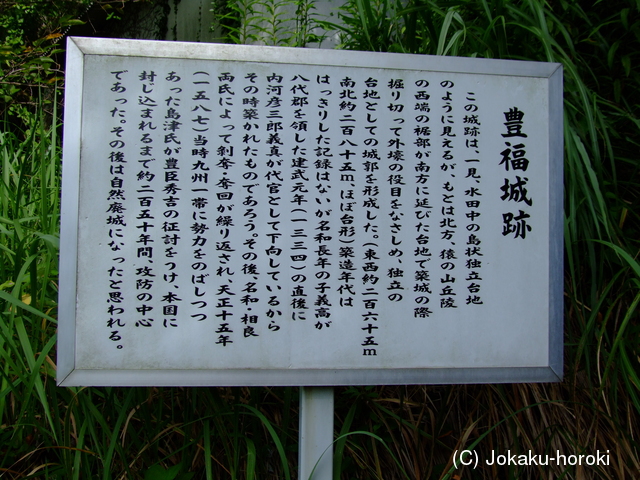 豊福城跡
この城跡は、一見、水田中の島状独立台地
のように見えるが、もとは北方、猿の山丘陵
の西端の裾部が南方に延びた台地で築城の際
掘り切って外壕の役目をなさしめ、独立の
台地としての城郭を形成した。(東西約二百六十五m
南北約二百八十五m、ほぼ台形)築造年代は
はっきりした記録はないが名和長年の子義高が
八代郡を領した建武元年(一三三四)の直後に
内河彦三郎義真が代官として下向しているから
その時築かれたものであろう。その後、名和・相良
両氏によって剥奪・奪回が繰り返され、天正十五年
(一五八七)当時九州一帯に勢力をのばしつつ
あった島津氏が豊臣秀吉の征討をうけ、本国に
封じ込まれるまで約二百五十年間、攻防の中心
であった。その後は自然廃城になったと思われる。
(C) Jokaku-horoki